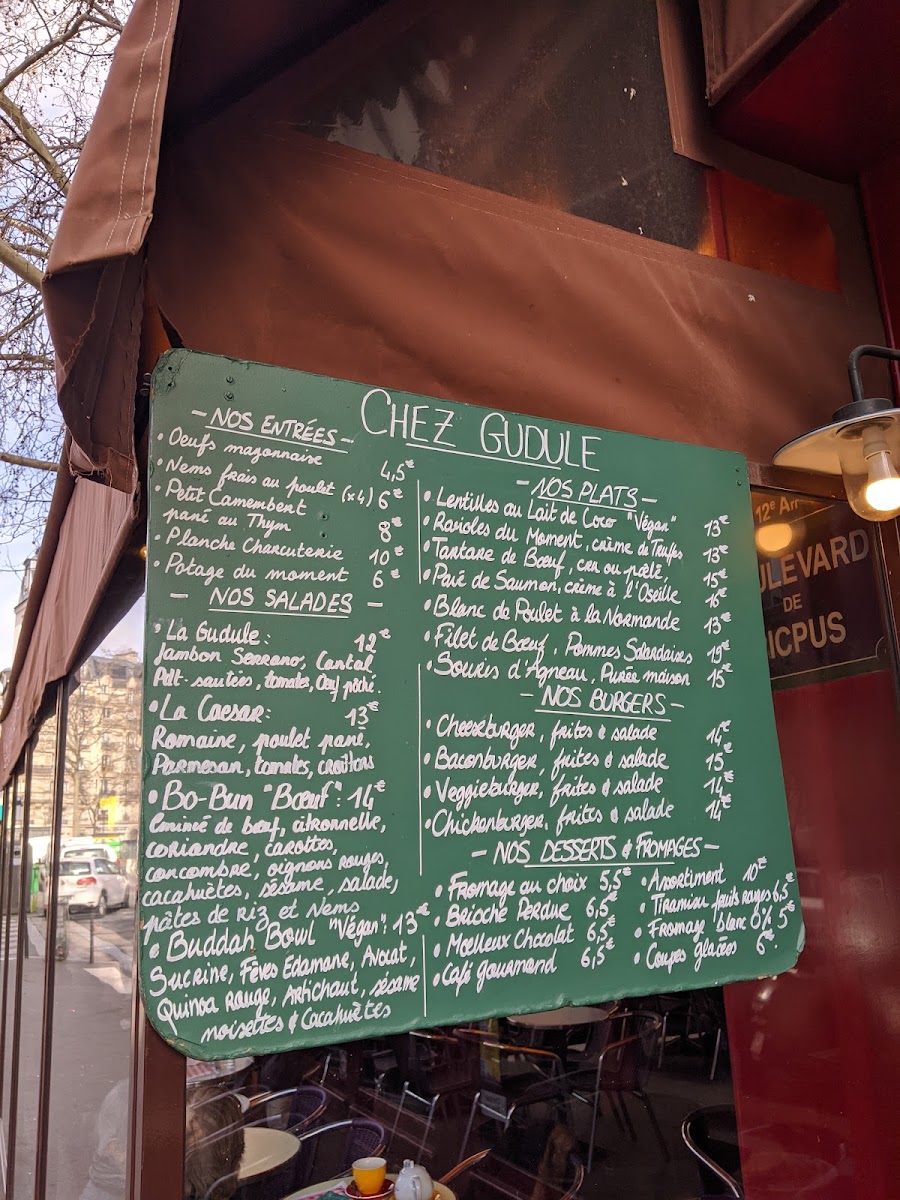 CHEZ GUDULE
- NOS ENTRÉES -
• Oeufs mayonnaise 4,5€
• Nems frais au poulet (x4) 6€
• Petit Camembert
pané au Thym 8€
• Planche Charcuterie 10€
• Potage du moment 6€
- NOS SALADES -
• La Gudule: 12€
Jambon Serrano, Cantal,
Pdt. sautées, tomates, Oeuf poché.
• La Caesar: 13€
Romaine, poulet pané,
Parmesan, tomates, croûtons
• Bo-Bun "Bœuf": 14€
Eminicé de bœuf, citronnelle,
coriandre, carottes,
concombre, oignons rouges,
cacahuètes, sésame, salade,
pâtes de Riz et Nems
• Buddah Bowl "Végan": 13€
Sucrine, Fèves Edamane, Avocat,
Quinoa Rouge, Artichaut, sésame
noisettes & Cacahuètes
- NOS PLATS -
• Lentilles au Lait de Coco "Végan" 13€
• Ravioles du Moment, crème de Truffes 13€
• Tartare de Bœuf, cru ou poêlé, 15€
• Pavé de Saumon, crème à l'Oseille 16€
• Blanc de Poulet à la Normande 13€
• Filet de Bœuf, Pommes Salardaises 19€
• Souris d'Agneau, Purée maison 15€
- NOS BURGERS -
• Cheeseburger, frites & salade 14€
• Baconburger, frites & salade 15€
• Veggieburger, frites & salade 14€
• Chickenburger, frites & salade 14€
- NOS DESSERTS & FROMAGES -
• Fromage au choix 5,5€
• Brioche Perdue 6,5€
• Moelleux Chocolat 6,5€
• Café gourmand 6,5€
• Assortiment 10€
• Tiramisu fruits rouges 6,5€
• Fromage blanc 0% 5€
• Coupes glacées 6€
12e Arr
ULEVARD
DE
ICPUS